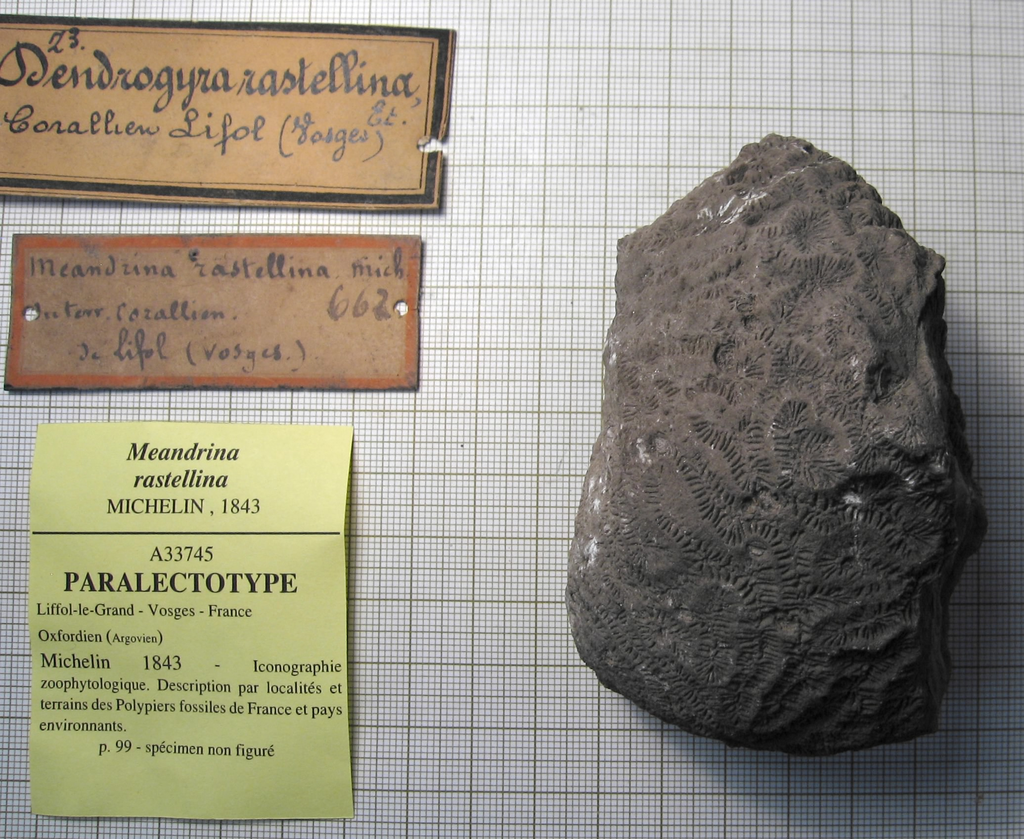 23.
Dendrogyra rastellina,
Et.
Corallien Lifol (Vosges)
Meandrina rastellina. mich
terr. corallien. 662
de lifol (vosges.)
Meandrina
rastellina
MICHELIN , 1843
A33745
PARALECTOTYPE
Liffol-le-Grand - Vosges - France
Oxfordien (Argovien)
Michelin 1843 - Iconographie
zoophytologique. Description par localités et
terrains des Polypiers fossiles de France et pays
environnants.
p. 99 - spécimen non figuré